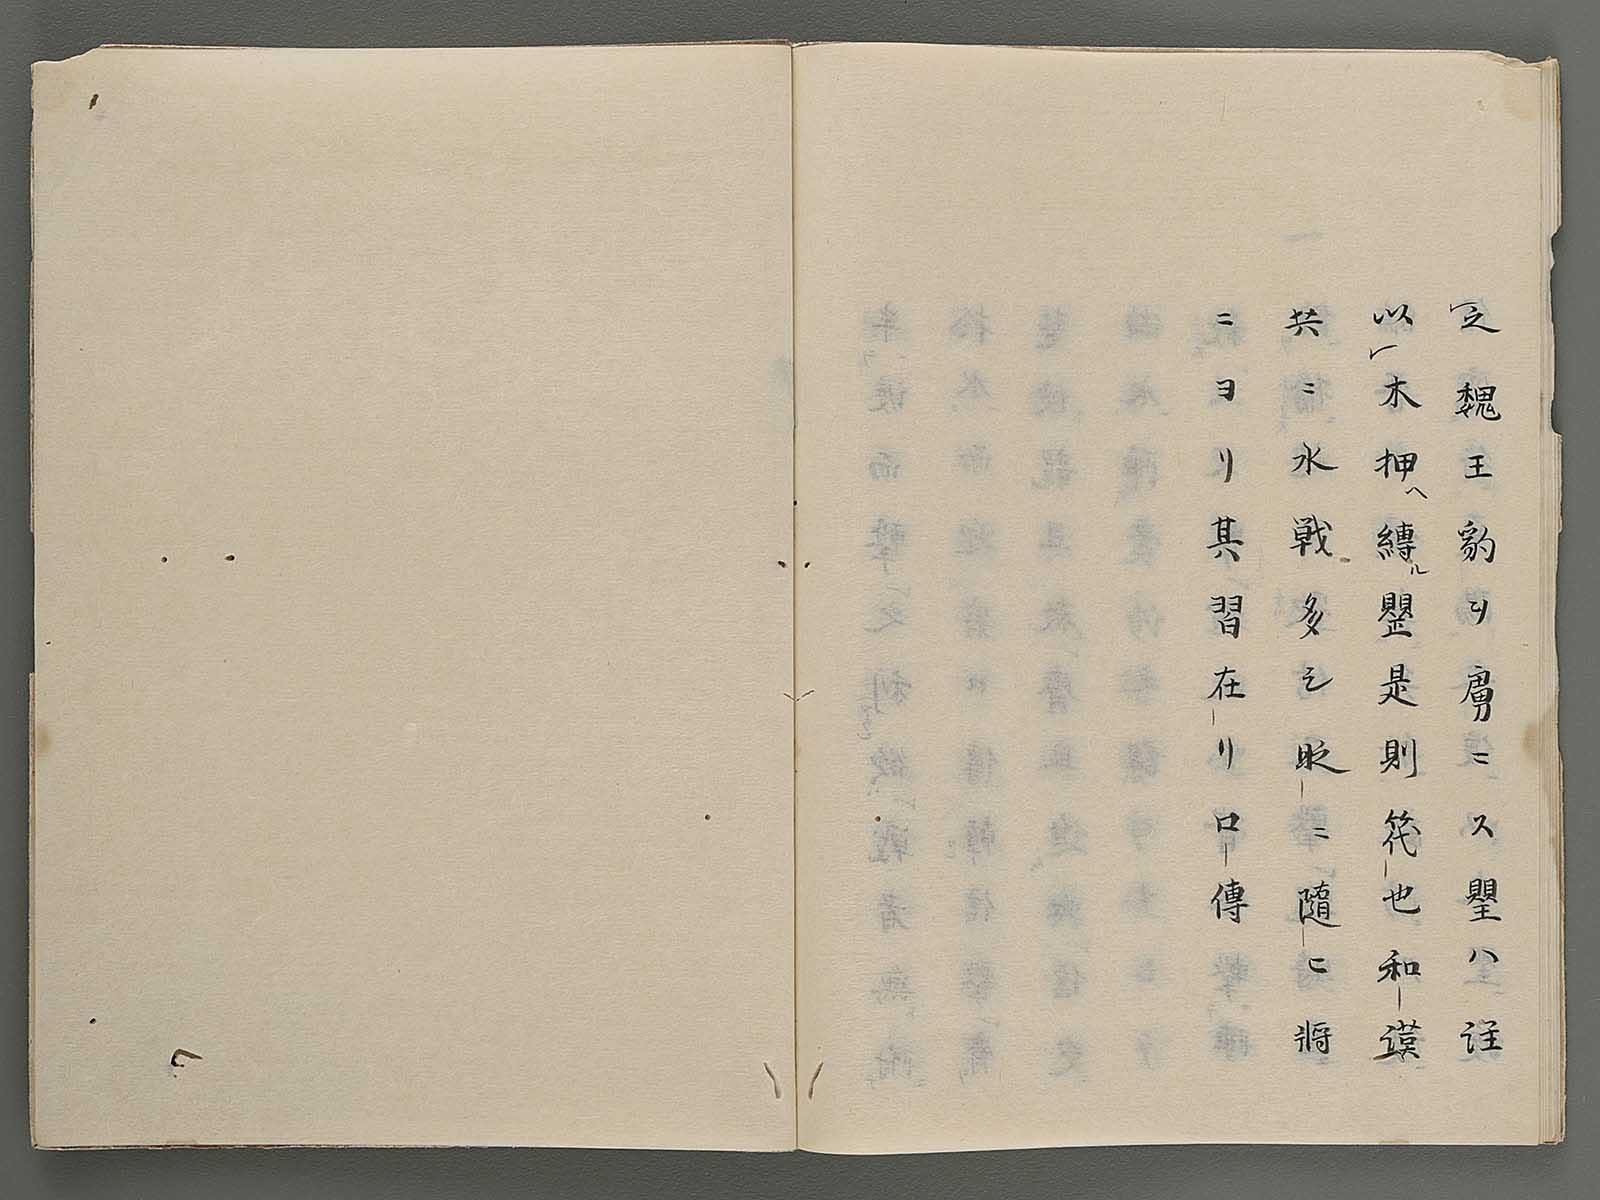 㝎魏王豹ヲ虜ニス罌ハ註
以木押ヘ縛ル罌是則筏也和漢
共ニ水戦多之ニ隨ヒ將
ニヨリ其習在リ口傳